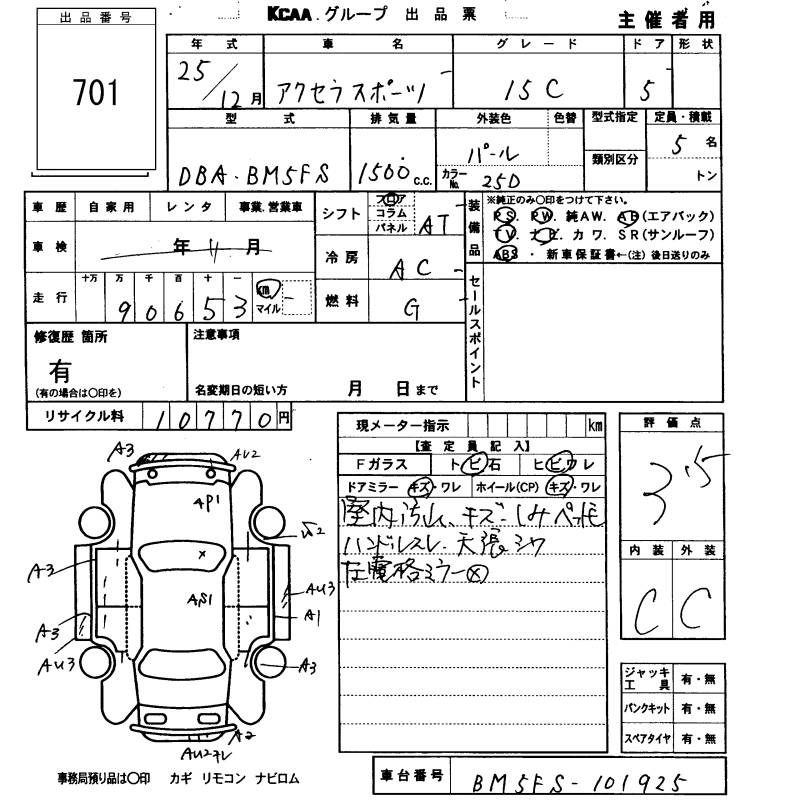 出品番号
701
KCAA.グループ 出品票
主催者用
年式 車名 グレード ドア 形状
25/12月 アクセラスポーツ 15C 5
型式 排気量 外装色 色替 型式指定 定員・積載
DBA-BM5FS 1500 c.c. パール 5名
カラーNo. 25D 類別区分 トン
車歴 自家用 レンタ 事業.営業車
シフト フロア コラム パネル AT
装備品
※純正のみ〇印をつけて下さい。
PS. PW. 純AW. AB(エアバック)
TV. ナビ. カワ. SR(サンルーフ)
ABS ・ 新車保証書←(注) 後日送りのみ
車検 年 月
冷房 AC
走行 十万 万 千 百 十 一
90653 km マイル
燃料 G
セールスポイント
修復歴 箇所
有
(有の場合は〇印を)
注意事項
名変期日の短い方 月 日まで
リサイクル料 10770円
現メーター指示 km
【査定員記入】
Fガラス トビ石 ヒビワレ
ドアミラー キズ・ワレ ホイール(CP) キズ・ワレ
室内汚れ、キズ、シミ ペット毛
ハンドルスレ.天張シワ
左電格ミラー
評価点
3.5
内装 外装
C C
ジャッキ工具 有・無
パンクキット 有・無
スペアタイヤ 有・無
A3
AU2
AP1
A3
AS1
AU3
A1
A3
AU3
A3
A2
AU2
事務局預り品は〇印 カギ リモコン ナビロム
車台番号 BM5FS-101925